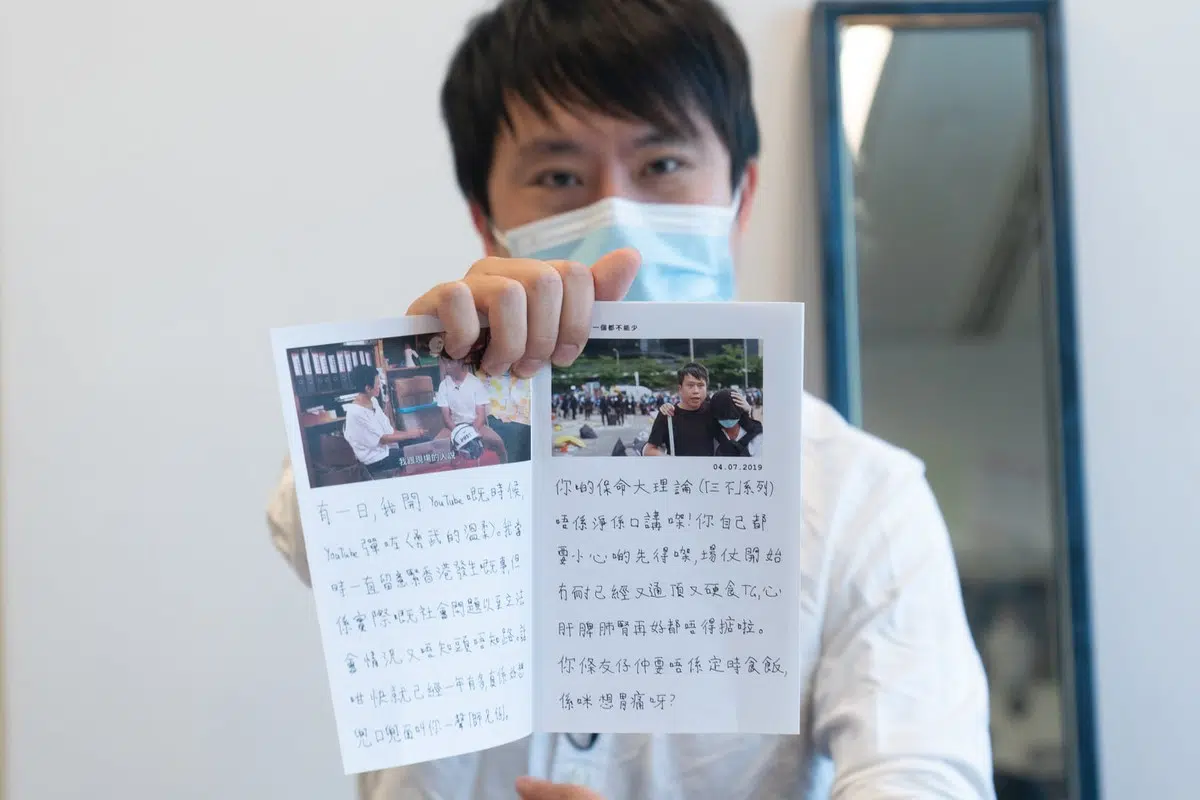 一個都不能少
我跟現場的人說
有一日，我開 YouTube 嘅時候，
YouTube 彈咗《勇武的溫柔》。我當
時一直留意緊香港發生嘅事，但
係實際嘅社會問題以至立法
會情況又唔知頭唔知路，
咁快就已經一年有多，直係好想
兜口兜面叫你一聲「師兄」。
04.07.2019
你啲保命大理論（「三不」系列）
唔係淨係口講㗎！你自己都
要小心啲先得㗎，場仗開始
冇耐已經又通頂又硬食TG，心
肝脾肺腎再好都唔得掂啦。
你條友仔仲要唔係定時食飯，
係咪想胃痛呀？